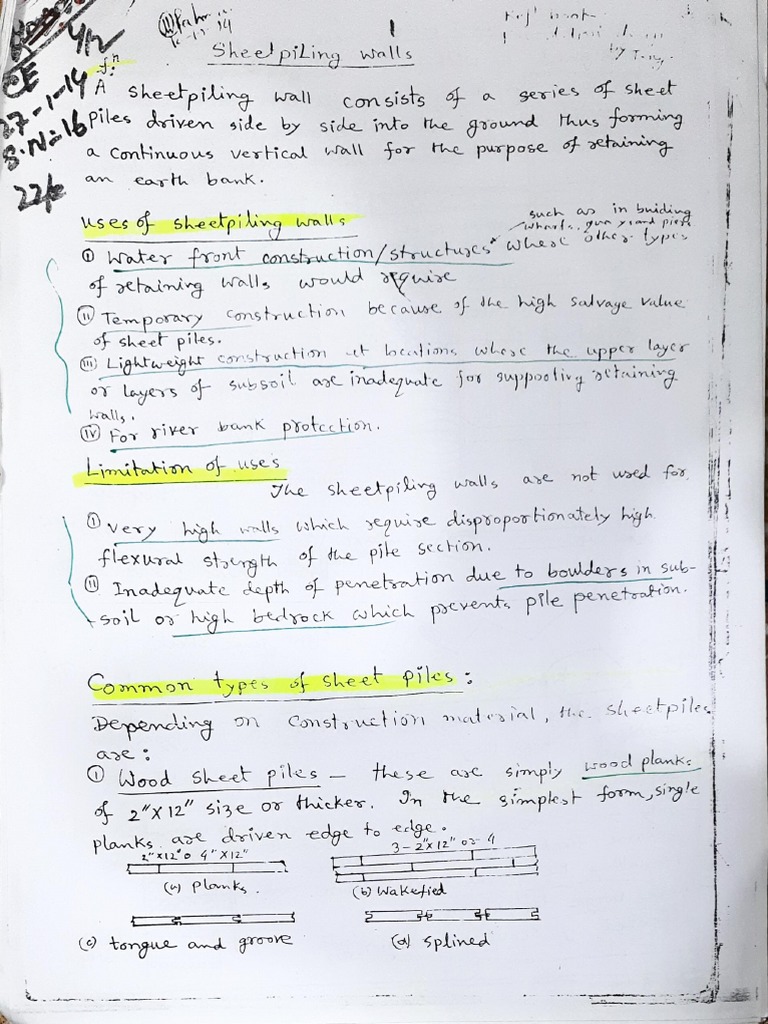 4/2
CE
27-1-14
S.N=16
1
Sheetpiling walls
by
A sheetpiling wall consists of a series of sheet
piles driven side by side into the ground thus forming
a continuous vertical wall for the purpose of retaining
an earth bank.
uses of sheetpiling walls
such as in buiding
wharfs, and piers
(I) Water front construction/structures where other types
of retaining walls would require
(II) Temporary construction because of the high salvage value
of sheet piles.
(III) Lightweight construction at locations where the upper layer
or layers of subsoil are inadequate for supporting retaining
walls.
(IV) For river bank protection.
Limitation of uses
The sheetpiling walls are not used for
(I) very high walls which require disproportionately high
flexural strength of the pile section.
(II) Inadequate depth of penetration due to boulders in sub-
soil or high bedrock which prevents pile penetration.
Common types of sheet piles:
Depending on construction material, the sheetpiles
are:
(I) Wood sheet piles – these are simply wood planks
of 2"x12" size or thicker. In the simplest form, single
planks are driven edge to edge.
2"x12" o 4"x12"
3-2"x12" or 4
(a) Planks.
(b) Wakefied
(c) tongue and groove
(d) splined